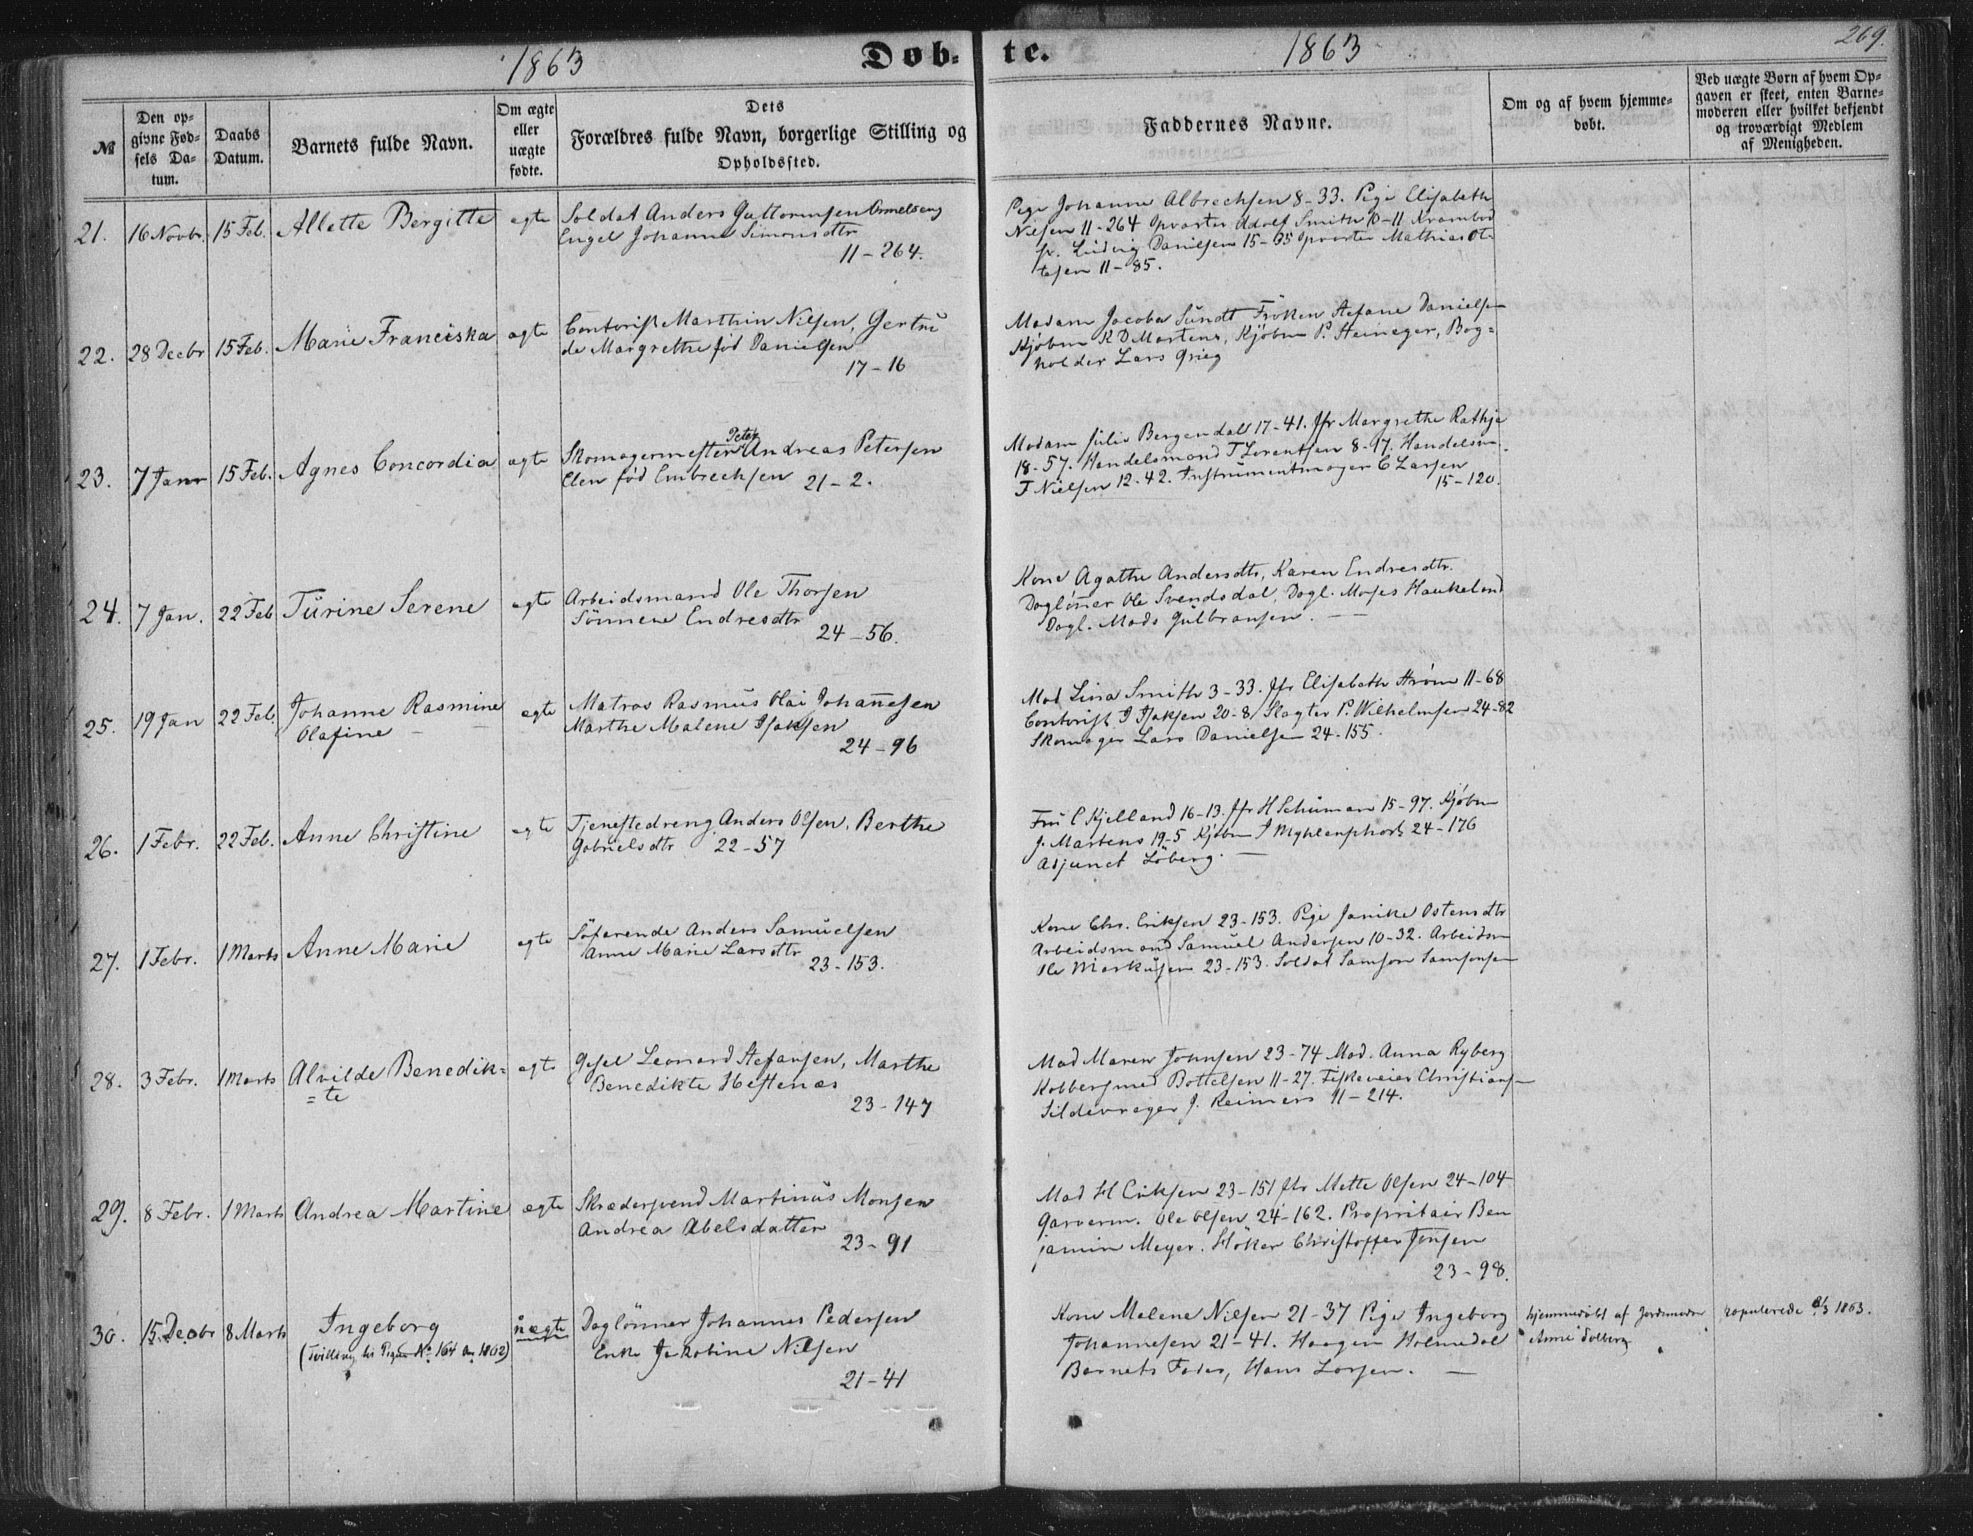 1863 Døb- te. 1863 269.
№
Den op-
givne Fød-
sels Da-
tum.
Daabs
Datum.
Barnets fulde Navn.
Om ægte
eller
uægte
fødte.
Dets
Forældres fulde Navn, borgerlige Stilling og
Opholdssted.
Faddernes Navne.
Om og af hvem hjemme-
døbt.
Ved uægte Børn af hvem Op-
gaven er skeet, enten Barne-
moderen eller hvilket bekjendt
og troværdigt Medlem
af Menigheden.
21. 16 Novbr. 15 Feb. Allette Bergitte egte
Soldat Anders Guttormsen
Engel Johanne Simonsdtr
11-264.
Pige Johanne Albrechsen 8-33. Pige Elisabeth
Nielsen 11-264 Opvarter Adolf Smith 10-11 Krambod
fv. Ludvig Danielsen 15-35 Opvarter Mathias Ot
tesen 11-85.
22. 28 Decbr 15 Feb. Marie Franciska egte
Contorist Marthin Nilsen, Gertru
de Margrethe fød Danielsen
17-16
Madam Jacoba Sundt Frøken Stefane Danielsen
Kjøbm R D Martens, Kjøbm P. Heineger, Bog=
holder Lars Grieg
23. 7 Janr 15 Feb. Agnes Concordia egte
Peter
Skomagermester Andreas Petersen
Elen fød Embrechsen 21-2.
Madam Julie Bergendal 17-41. Jfr Margrethe Rathje
18-57. Handelsmand T Lorentsen 8-97. Handelsm.
T Nielsen 12-42. Instrumentmager C Larsen
15-120.
24. 7 Jan. 22 Feb Turine Serene egte
Arbeidsmand Ole Thorsen
Sønneve Endresdtr
24-56.
Kone Agathe Andersdtr, Karen Endresdtr.
Dagløner Ole Svendsdal, Dagl. Moses Haukeland
Dagl. Mads Gulbransen. —
25. 19 Jan 22 Feb. Johanne Rasmine egte
Olafine —
Matros Rasmus Olai Johannesen
Marthe Malene Isaksen
24-96
Mad Lina Smith 3-33. Jfr Elisabeth Strøm 11-68
Contorist I Isaksen 20-8 Slagter P. Wilhelmsen 24-82
Skomager Lars Danielsen 24-155.
26. 1 Febr. 22 Feb. Anne Christine egte
Tjenestedreng Anders Olsen. Berthe
Gabrielsdtr 22-57
Fru C Kjelland 16-13. Jfr H Schuman 15-97. Kjøbm
J. Martens 19-5 Kjøbm I Myhlenphort 24-176
Adjunct Løberg. —
27. 1 Febr. 1 Marts Anne Marie egte
Søfarende Anders Samuelsen
Anne Marie Larsdtr
23-153.
Kone Chr. Eriksen 23-153. Pige Janike Ostensdtr
Arbeidsmand Samuel Andersen 10-32. Arbeidsm
Ole Markusen 23-153. Soldat Samson Samsonsen
28. 3 Febr. 1 Marts Alvilde Benedik= egte
=te
Gesel Leonard Stefansen, Marthe
Benedikte Heftenes
23-147
Mad Maren Johnsen 23-74 Mad. Anna Ryberg
Kobbersmed Bottelsen 11-27. Fiskeveier Christiansen
Sildevrager J. Reimers 11-214.
29. 8 Febr. 1 Marts Andrea Martine egte
Skrædersvend Martinus Monsen
Andrea Abelsdatter
23-91
Mad H Eriksen 23-151 Jfr Mette Olsen 24-104
Garverm. Ole Olsen 24-162. Propritair Ben
jamin Meyer. Høker Christoffer Jensen
23-98.
30. 15 Decbr 8 Marts Ingeborg uægte
(Tvilling til Pigen No 164 1862)
Dagløner Johannes Pedersen
Enke Jakobine Nilsen
21-41
Kone Malene Nilsen 21-37 Pige Ingeborg
Johannesen 21-41. Haagen Holmedal
Barnets Fader, Hans Larsen. —
hjemmedøbt af Jordemoder
Anne Solberg
copulerede 8/3 1863.